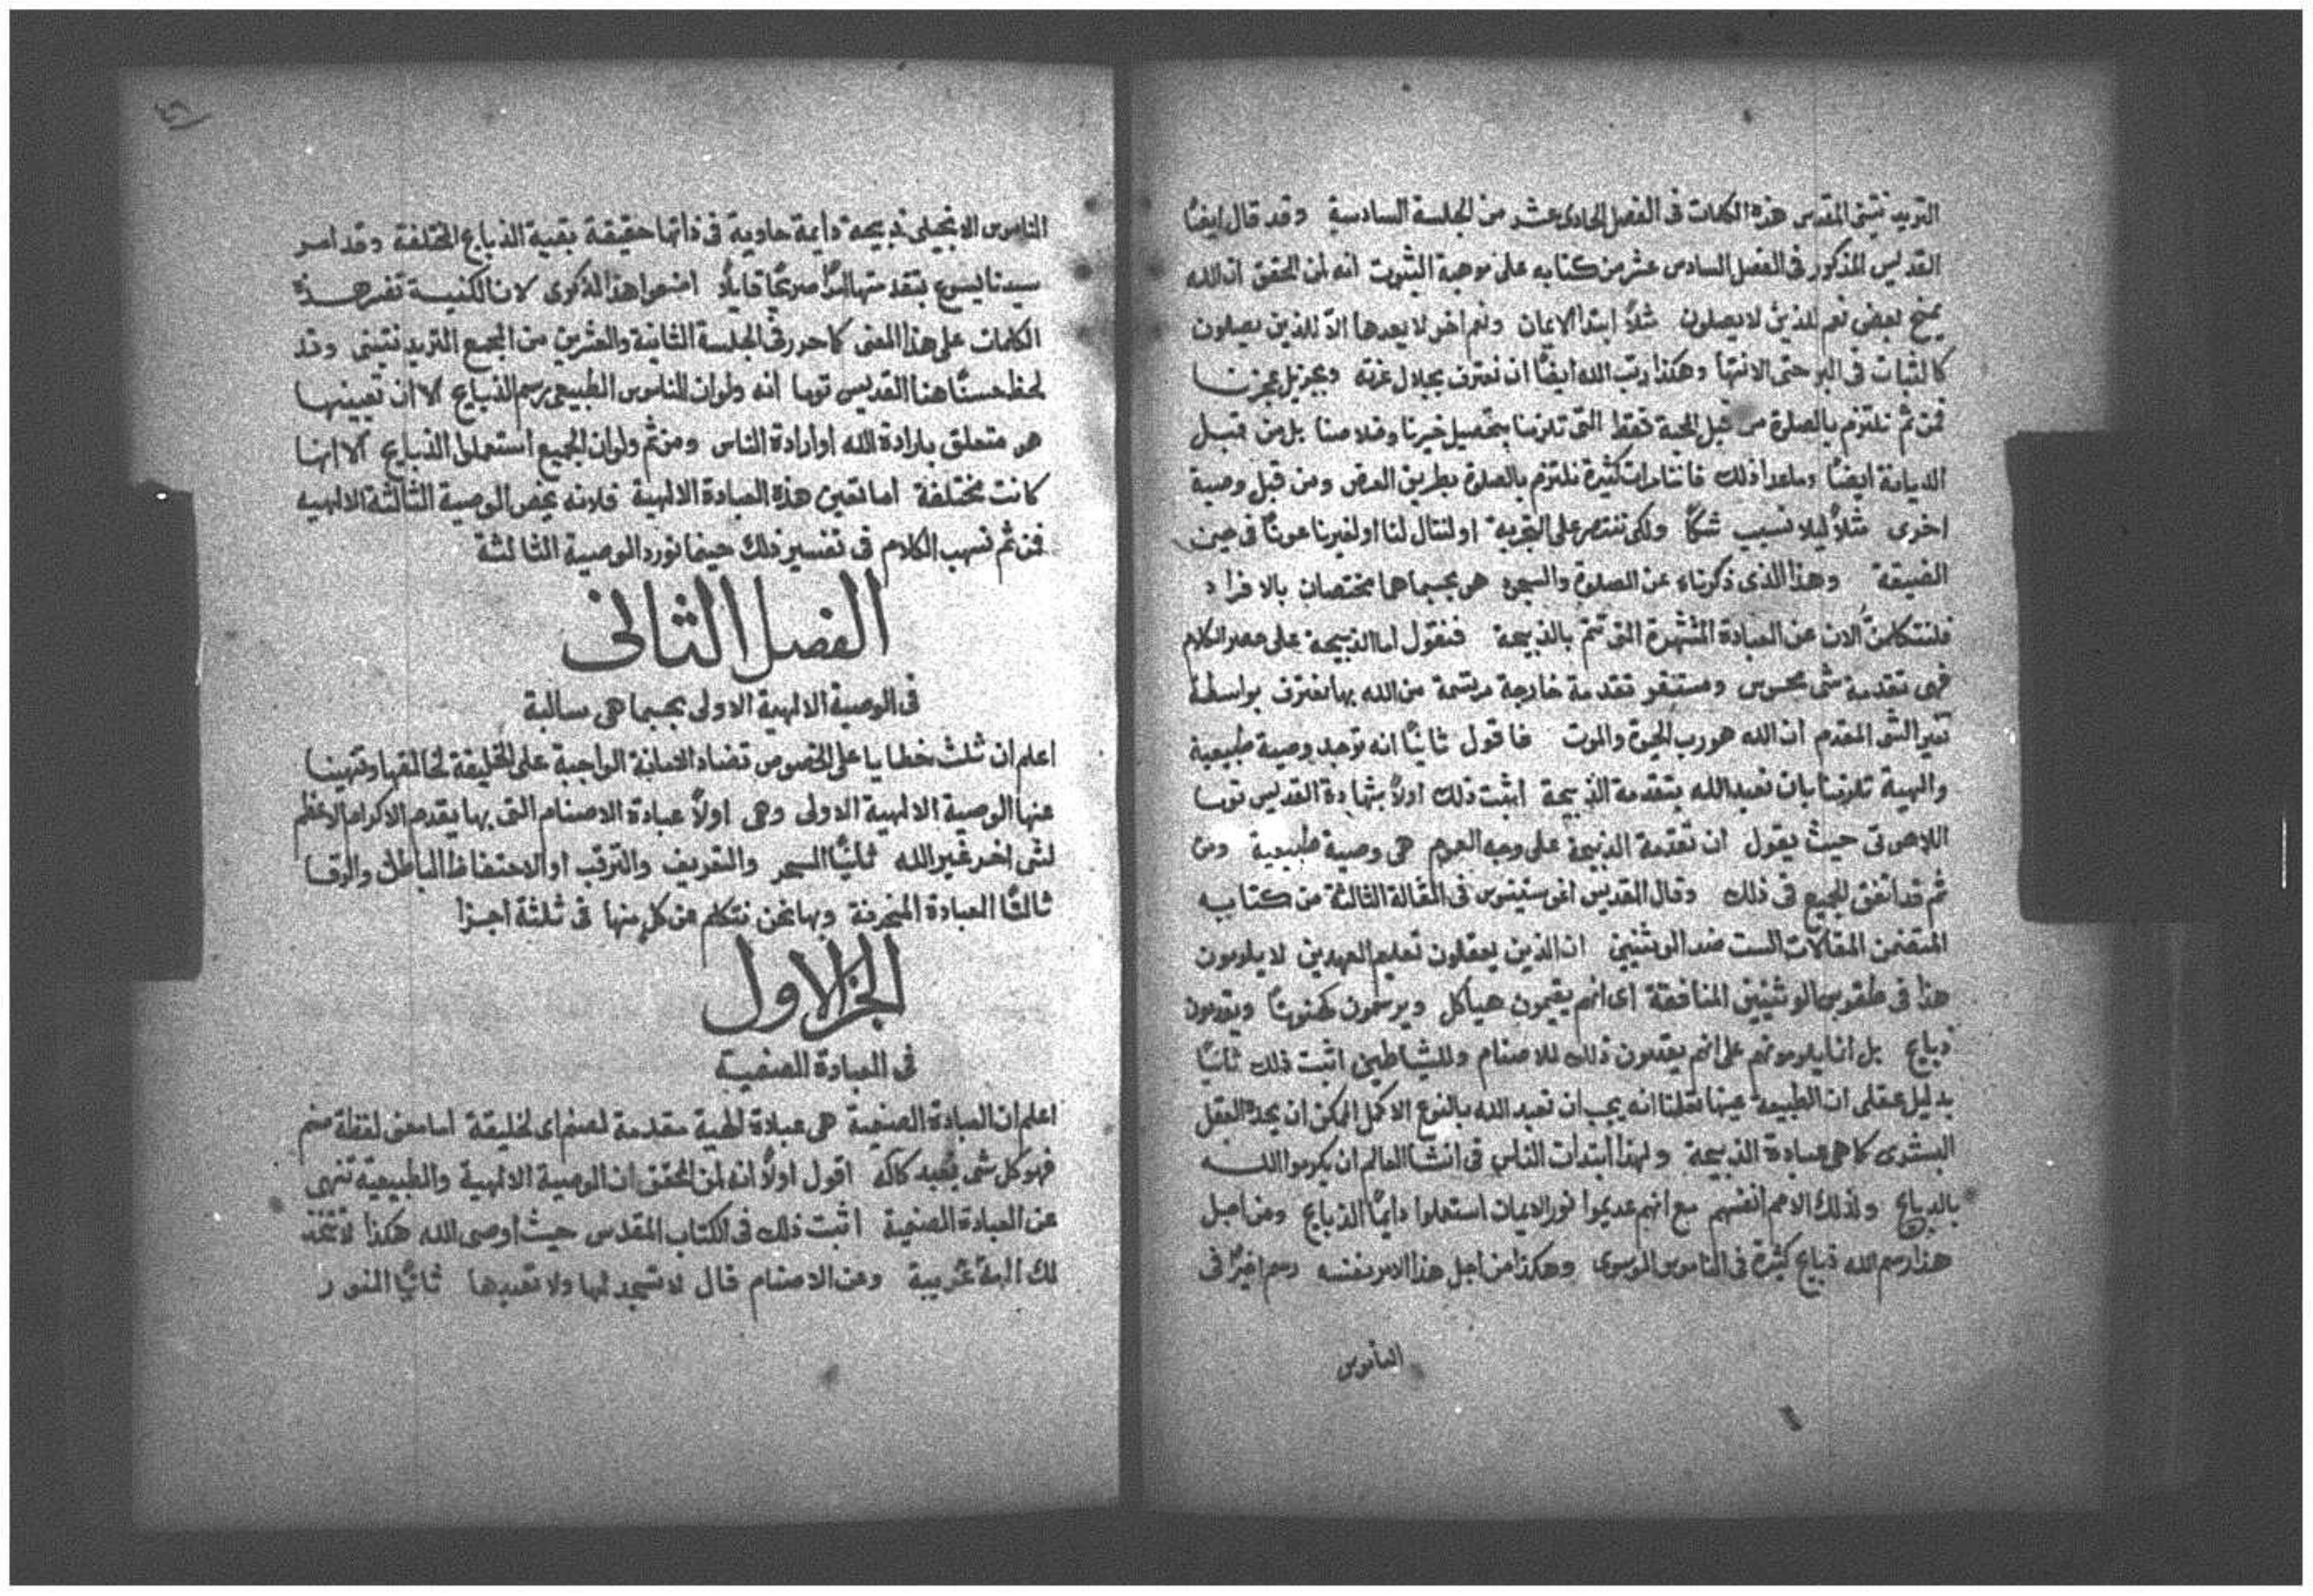 التريدنتيني المقدس هذه الكلمات في الفصل الحادي عشر من الجلسة السادسة وقد قال ايضًا
القديس المذكور في الفصل السادس عشر من كتابه على موهبة الثبوت انه لمن المحقق ان الله
يمنح بعض نعم للذين لا يصلون مثلاً ابتدا الايمان ونعم اخر لا يعدها الاّ للذين يصلون
كالثبات في البر حتى الانتها وهكذا رتب الله ايضًا ان نعترف بجلال عزته وبجزيل عجزنا
فمن ثم نلتزم بالصلوة من قبل المحبة فقط التي تلزمنا بتحصيل خيرنا وخلاصنا بل من قبل
الديانة ايضًا وماعدا ذلك فاننا مرات كثيرة نلتزم بالصلوة بطريق العرض ومن قبل وصية
اخرى مثلاً ليلا نسبب شكًا ولكي ننتصر على التجربة او لننال لنا او لغيرنا عونًا في حين
الضيقة وهذا الذي ذكرناه عن الصلوة والسجود هو بحسبما هما مختصان بالافراد
فلنتكلمنَّ الان عن العبادة المشتهرة التي تتم بالذبيحة فنقول اما الذبيحة على حصر الكلام
فهي تقدمة شي محسوس ومستقر تقدمة خارجة مرتسمة من الله بها نعترف بواسطة
تغير الشي المقدم ان الله هو رب الحيوة والموت فاقول ثانيًا انه توجد وصية طبيعية
والهية تلزمنا بان نعبد الله بتقدمة الذبيحة اثبت ذلك اولاً بشهادة القديس توما
اللاهوتي حيث يقول ان تقدمة الذبيحة على وجه العموم هي وصية طبيعية ومن
ثم قد اتفق الجميع في ذلك وقال القديس اغوستينوس في المقالة الثالثة من كتابه
المتضمن المقالات الست ضد الوثنيين ان الذين يعقلون تعليم العهدين لا يلومون
هذا في طقوس الوثنيين المنافقة اي انهم يقيمون هياكل ويرسمون كهنوتًا ويقدمون
ذبايح بل انما يلومونهم على انهم يقدمون ذلك للاصنام وللشياطين اثبت ذلك ثانيًا
بدليل عقلي ان الطبيعة عينها تعلمنا انه يجب ان نعبد الله بالنوع الاكمل الممكن ان يجده العقل
البشري كما هي عبادة الذبيحة ولهذا ابتدات الناس في انشا العالم ان يكرموا الله
بالذبايح وكذلك الامم انفسهم مع انهم عديموا نور الايمان استعملوا دايمًا الذبايح ومن اجل
هذا رسم الله ذبايح كثيرة في الناموس الموسوي وهكذا من اجل هذا الامر نفسه رسم اخيرًا في
الناموس
٤٦
الناموس الانجيلي ذبيحة دايمة حاوية في ذاتها حقيقة بقية الذبايح المختلفة وقد امر
سيدنا يسوع بتقدمتها امرًا صريحًا قايلاً اصنعوا هذا لذكري لان الكنيسة تفسر هذه
الكلمات على هذا المعنى كما حرر في الجلسة الثانية والعشرين من المجمع التريدنتيني وقد
لحظ حسنًا هنا القديس توما انه ولو ان الناموس الطبيعي يرسم الذبايح الا ان تعيينها
هو متعلق بارادة الله او ارادة الناس ومن ثم ولو ان الجميع استعملوا الذبايح الا انها
كانت مختلفة اما تعيين هذه العبادة الالهية فلانه يخص الوصية الثالثة الالهيه
فمن ثم نسهب الكلام في تفسير ذلك حينما نورد الوصية الثالثة
الفصل الثاني
في الوصية الالهية الاولى بحسبما هي سالبة
اعلم ان ثلث خطايا على الخصوص تضاد الديانة الواجبة على الخليقة لخالقها وتنهينا
عنها الوصية الالهية الاولى وهي اولاً عبادة الاصنام التي بها يقدم الاكرام الاعظم
لشي اخر غير الله ثانيًا السحر والتعريف والترقب او الاحتفاظ الباطل والرقا
ثالثًا العبادة المنحرفة وها نحن نتكلم عن كل منها في ثلثة اجزا
الجز الاول
في العبادة الصنمية
اعلم ان العبادة الصنمية هي عبادة الهية مقدمة لصنم اي لخليقة اما معنى لفظة صنم
فهو كل شي يُعبد كاله اقول اولاً انه لمن المحقق ان الوصية الالهية والطبيعية تنهى
عن العبادة الصنمية اثبت ذلك في الكتاب المقدس حيث اوصى الله هكذا لا تتخذ
لك الهة غريبة وعن الاصنام قال لا تسجد لها ولا تعبدها ثانيًا